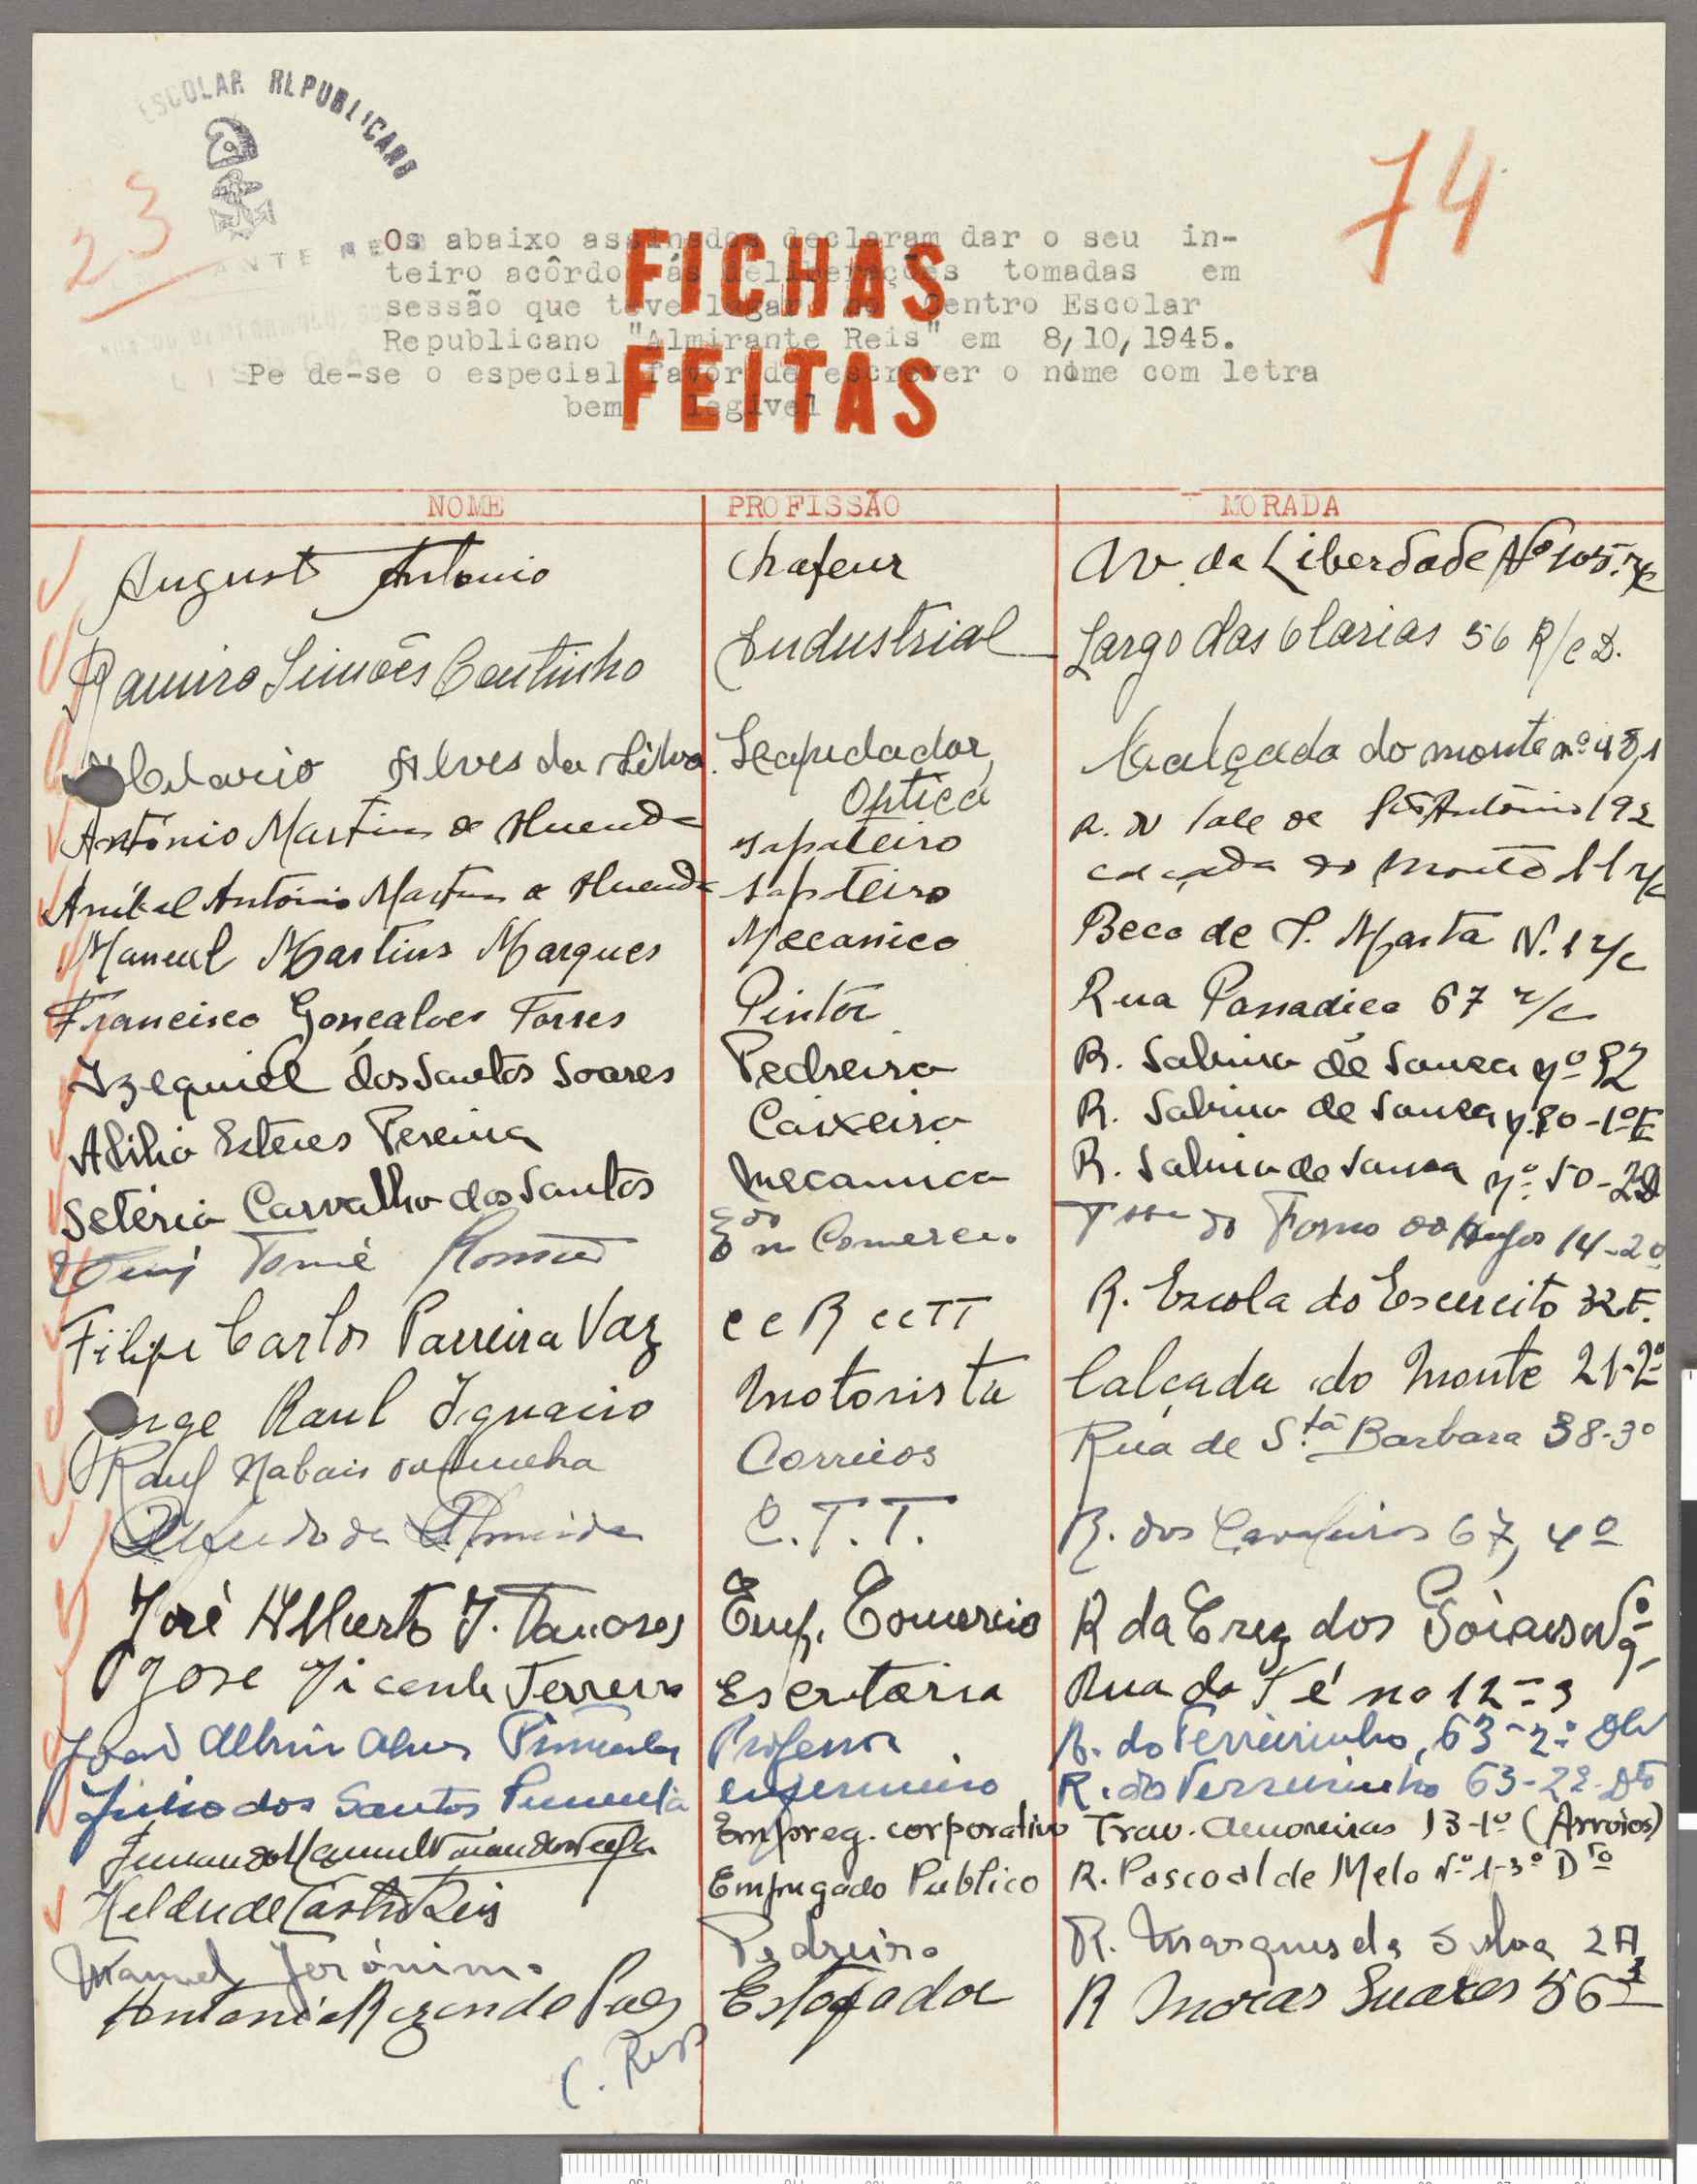 ESCOLAR REPUBLICANO
74
23
Os abaixo assinados declaram dar o seu in-
teiro acôrdo ás deliberações tomadas em
sessão que teve lugar no Centro Escolar
Republicano "Almirante Reis" em 8/10/1945.
Pe de-se o especial favor de escrever o nome com letra
bem legível
FICHAS
FEITAS
NOME PROFISSÃO MORADA
Augusto Antonio Chafeur Av. da Liberdade Nº 105. r/c
Ramiro Simões Coutinho Industrial Largo das Olarias 56 R/c D.
Alves da Silva. Lapidador Optica Calçada do monte nº 48,1
António Martins de Almeida sapateiro R. do Vale de Stº António 192
Anibal António Martins de Almeida sapateiro calçada do Monte 11 r/c
Manuel Martins Marques Mecanico Beco de S. Marta N. 1 r/c
Francisco Gonçalves Torres Pintor Rua Passadiço 67 r/c
Izequiel dos Santos Soares Pedreiro R. Sabino de Sousa nº 82
Abilio Esteves Pereira Caixeiro R. Sabino de Sousa n. 80-1ºE
Setério Carvalho dos Santos mecanico R. Sabino de Sousa nº 50-2D
Tomé Edo no Comercio do Forno do 14-2º
Filipe Carlos Parreira Vaz R. Escola do Exercito 32
Raul Ignacio motorista Calçada do Monte 21-2º
Raul Nabais da Cunha Correios Rua de S.tª Barbara 38-3º
Alfredo de Almeida C.T.T. R. dos Cavaleiros 67, 4º
José Alberto J. Tavares Emp. Comercio R da Cruz dos Nº 9
José Vicente Ferreira Escritorio Rua da Fé no 12-3
Alves Pimenta Professor R. do Terreirinho, 63-2º
Julio dos Santos Pimenta enfermeiro R. do Terreirinho 63-2º Dto
Fernando Manuel Empreg. corporativo Trav. Amoreiras 13-1º (Arroios)
Helder de Castro Reis Empregado Publico R. Pascoal de Melo Nº 1-3º Dto
Manuel Jerónimo Pedreiro R. Marques da Silva 2A
Antonio Rezende Pais Estofador R Morais Soares 56 3